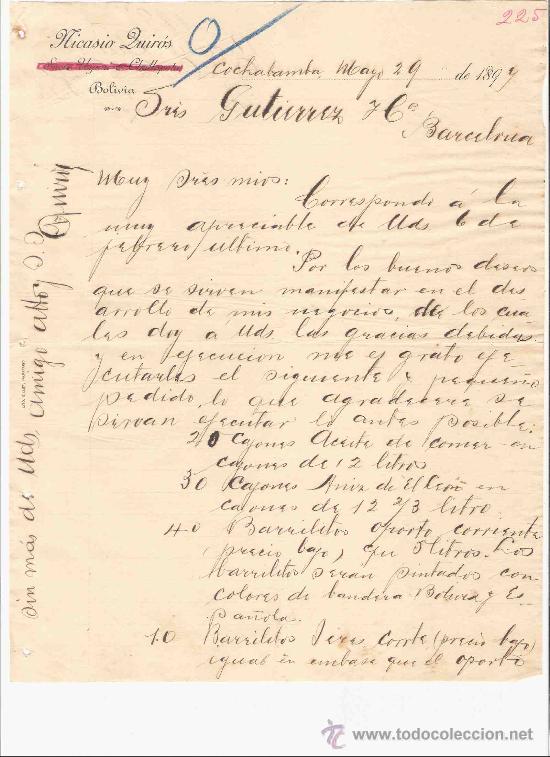 225
Nicasio Quirós
Bolivia
Cochabamba Mayo 29 de 1897
Sres Gutierrez y Ca
Barcelona
Muy Sres mios:
Correspondo á la
muy apreciable de Uds 6 de
febrero/ultimo
Por los buenos deseos
que se sirven manifestar en el des
arrollo de mis negocios, de los cua
les doy a Uds las gracias debidas
y en ejecucion me es grato eje
cutarles el siguiente y pequeño
pedido, lo que agradecere se
sirvan ejecutar lo antes posible:
20 Cajones Aceite de comer en
cajones de 12 litros
30 Cajones Aniz del León en
cajones de 12 2/3 litro
40 Barrilitos oporto corriente
(precio bajo) que 5 litros. Los
barrilitos seran pintados con
colores de bandera Bolivia y Es
pañola.
10 Barrilitos Jeres corrte (precio bajo)
igual en embase que el oporto
sin más de Uds. amigo atto y S. S.
Quirós
www.todocoleccion.net